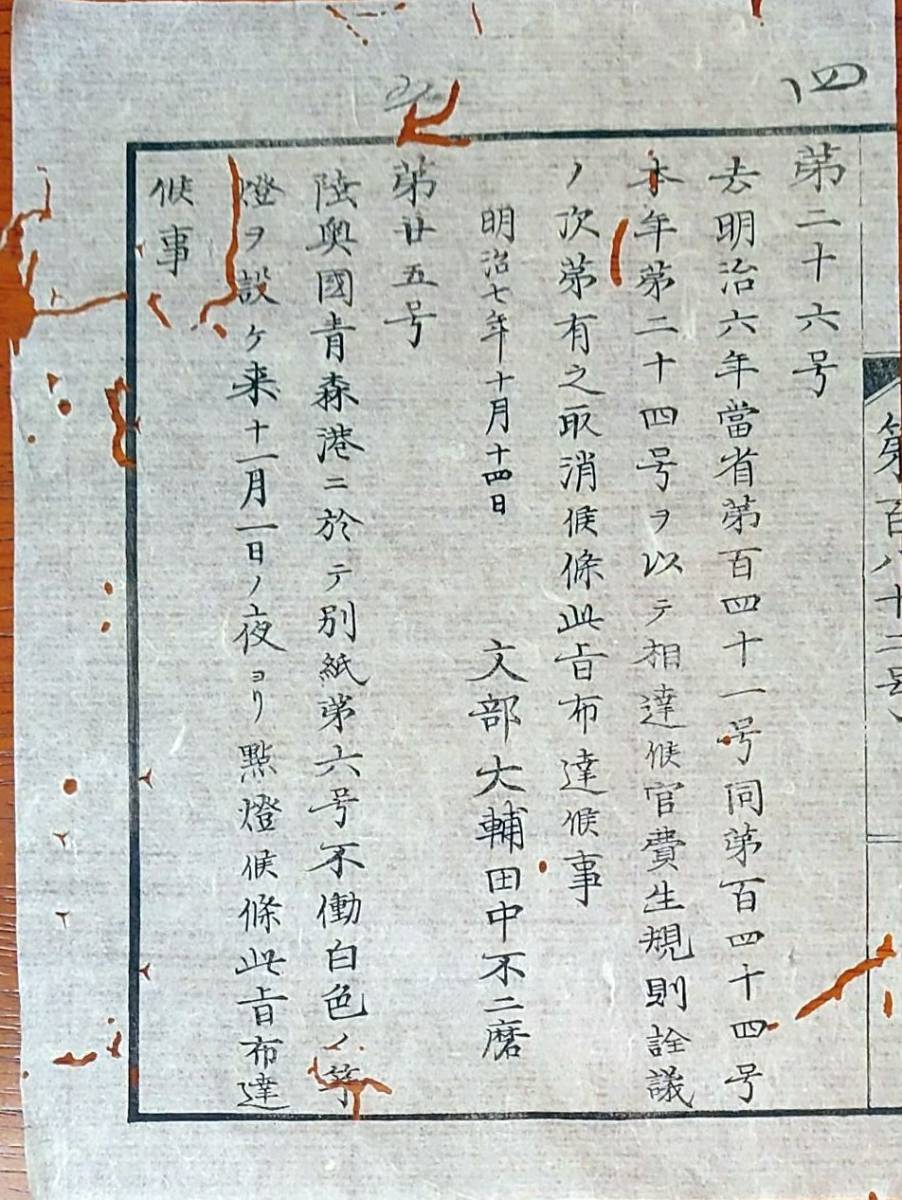 第百八十二号
四
第二十六号
去明治六年當省第百四十一号同第百四十四号
本年第二十四号ヲ以テ相達候官費生規則詮議
ノ次第有之取消候條此旨布達候事
明治七年十月十四日
文部大輔田中不二麿
第廿五号
陸奥國青森港ニ於テ別紙第六号不働白色ノ等
燈ヲ設ケ来十一月一日ノ夜ヨリ點燈候條此旨布達
候事